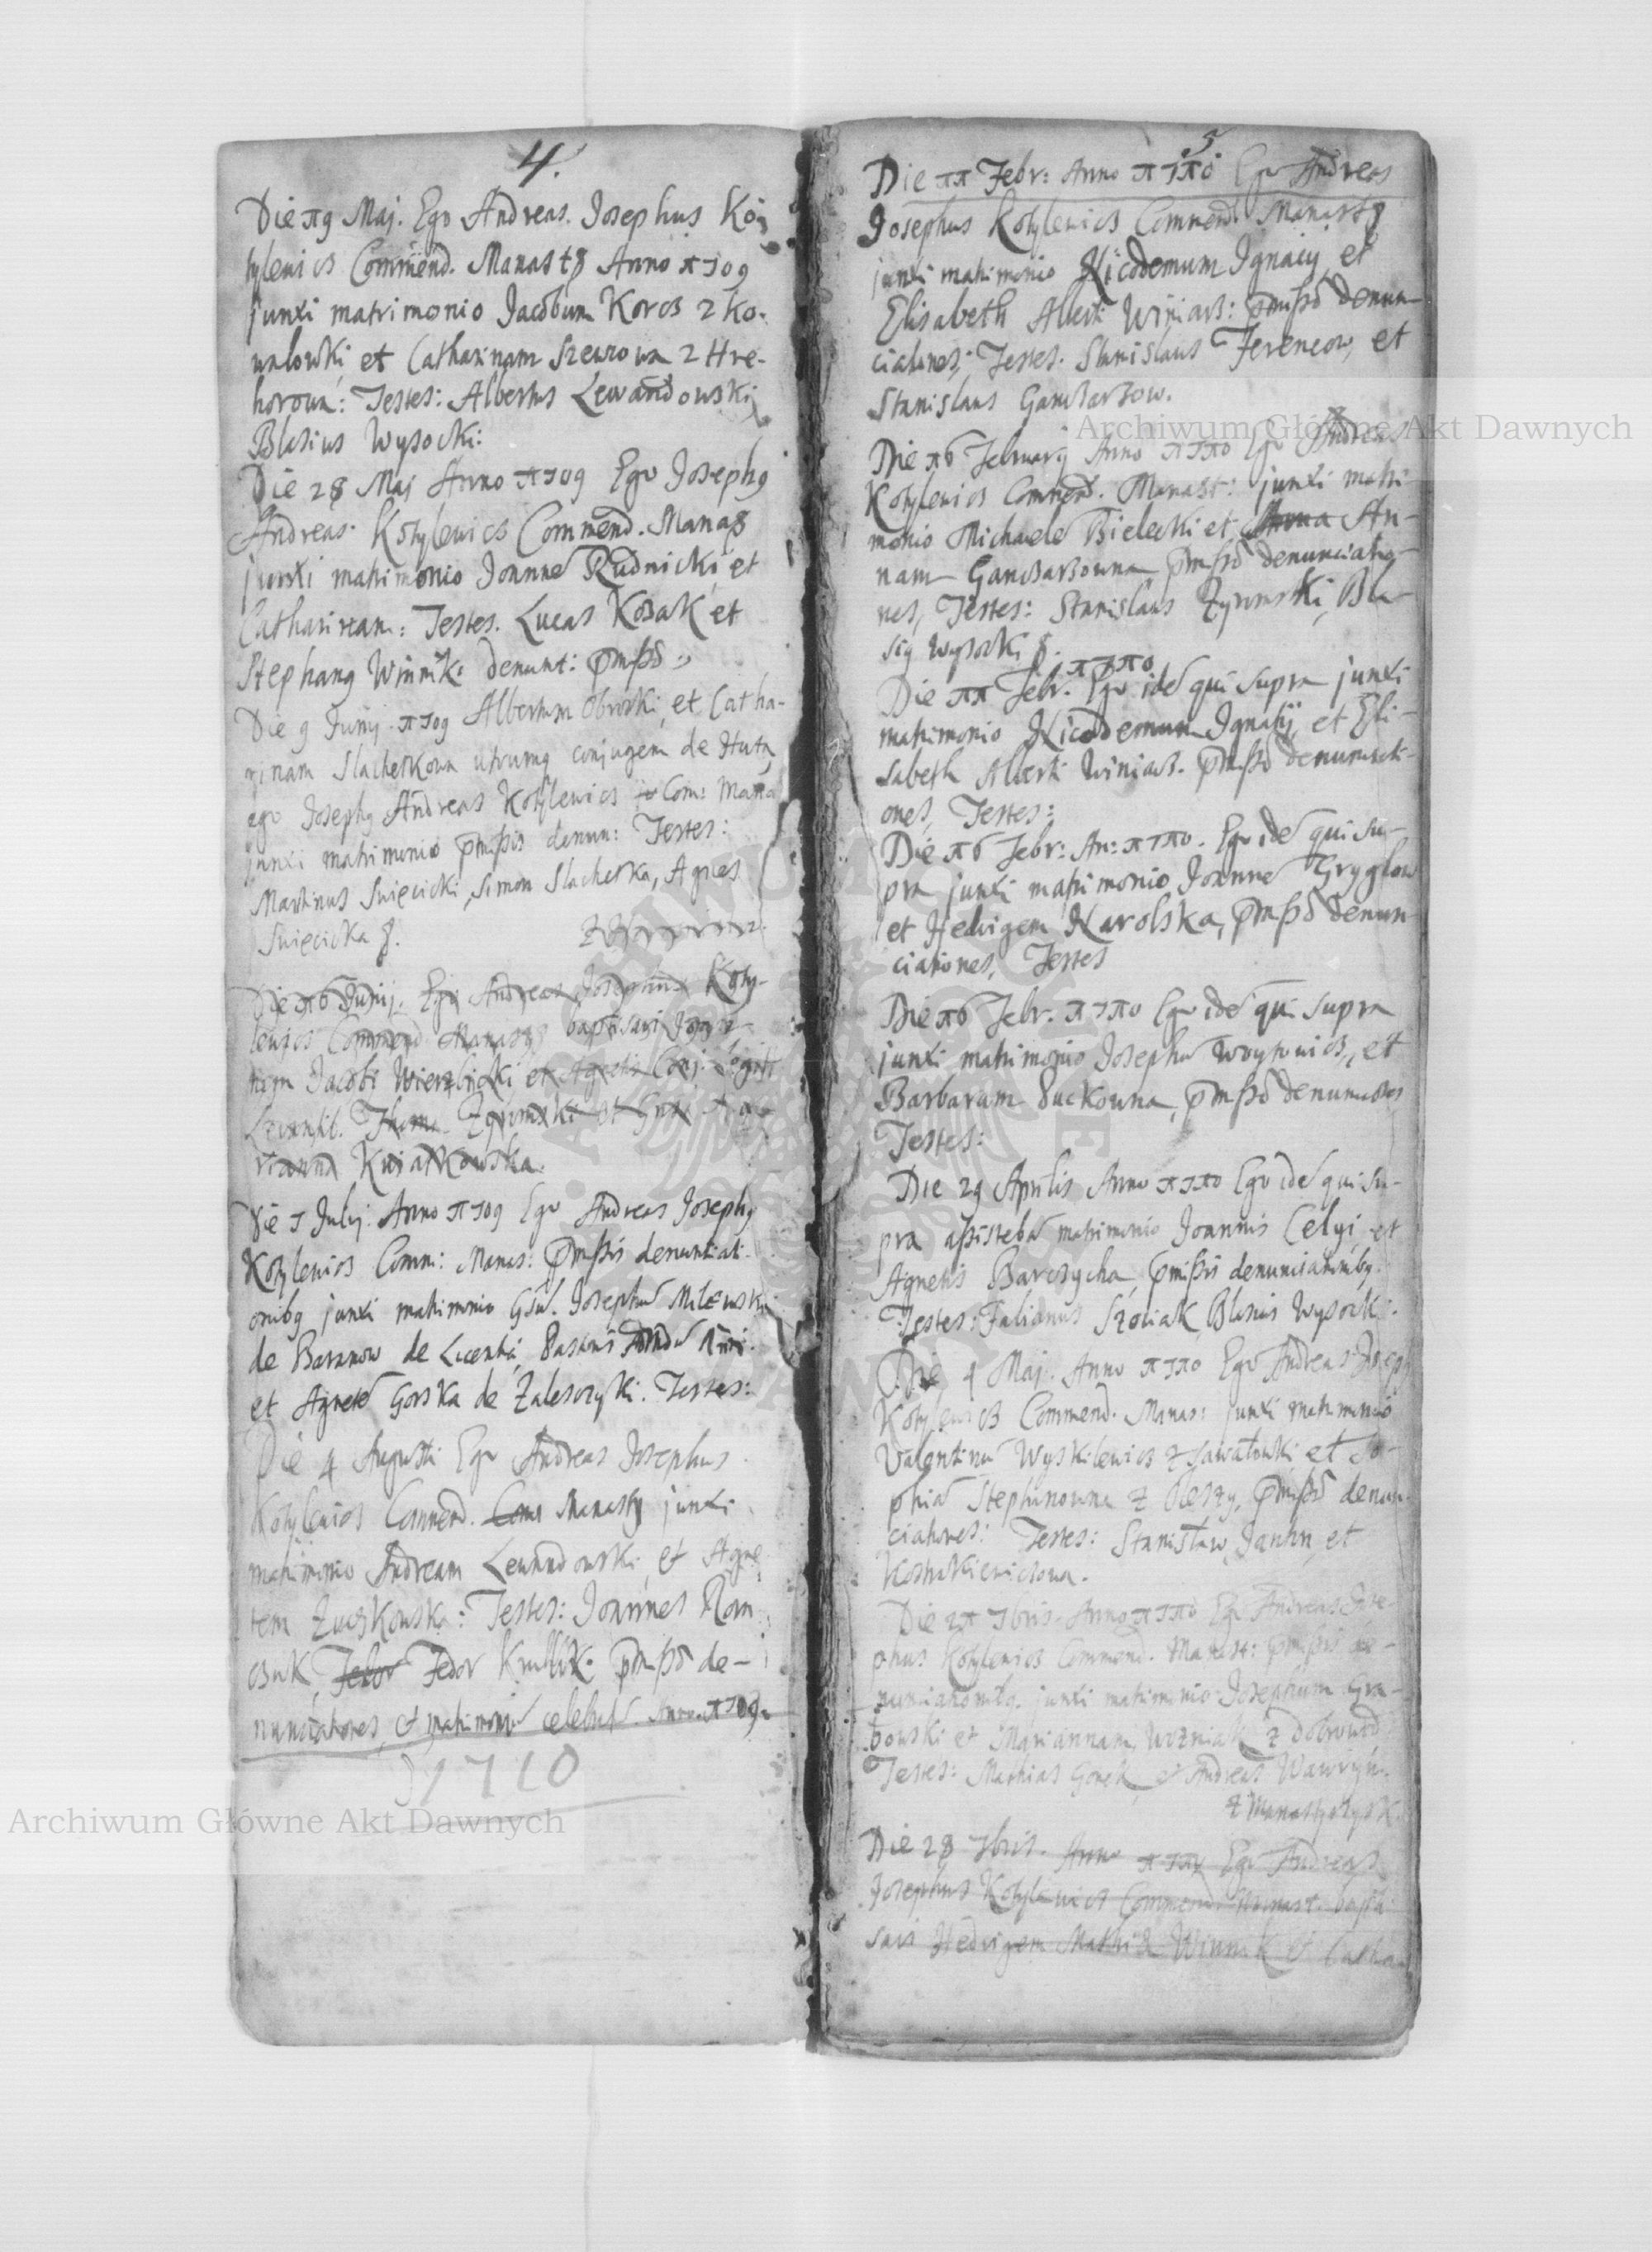 4.
Die 19 Maj. Ego Andreas. Josephus Ko-
tylewicz Commend. Manast8 Anno 1709
junxi matrimonio Jacobum Korcz z Ko-
walowki et Catharinam Szewcowa z Hre-
horowa: Testes: Albertus Lewandowski
Blasius Wysocki:
Die 28 Maj Anno 1709 Ego Josephg
Andreas Kotylewicz Commend. Manas
junxi matrimonio Joanne Rudnicki, et
Catharinam: Testes. Lucas Kozak et
Stephang Winnik denunt:
Die 9 Junij 1709 Albertum Obroski, et Catha-
rinam Slachetkowa utrumq conjugem de Huta,
ego Josephg Andreas Kotylewicz Com: Mana
junxi matrimonio pmissis denun: Testes:
Martinus Swięcicki, Simon Slachetka, Agnes
Swięcicka 8.
Die 16 Junij. Ego Andreas Josephus Koty-
lewicz Commend Manasg baptisavi
Jacobi Wierzbicki et Agnetis Conj. legitt
Levantib. Zyromski et
Kwiatkowska.
Die 7 Julij Anno 1709 Ego Andreas Josephg
Kotylewicz Comm: Manas: pmissis denuntiati-
onibg junxi matrimonio Josephu Milewski
de Baranow de Licentia
et Agnete Gorska de Zalesczyki. Testes:
Die 4 Augusti Ego Andreas Josephus
Kotylewicz Commend. Manastg junxi
matrimonio Andream Lewandowski, et Agne
tem Zuczkowska: Testes: Joannes Rom
czuk, Fedor de-
nunciationes, et matrimoniu celebr Anno 1709
1710
5
Die 11 Febr: Anno 1710 Ego Andreas
Josephus Kotylewicz Commend. Manast8
junxi matrimonio Nicodemum Ignacij, et
Elisabeth Alberti Winiars: pmisso denun-
ciationes; Testes. Stanislaus Ferencow, et
Stanislaus Ganczarzow.
Die 16 Februarij Anno 1710 Ego Andreas
Kotylewicz Commend. Manast: junxi matri
monio Michaele Bielecki et Anna An-
nam Ganczarzowna denunciatio-
nes, Testes: Stanislaus Zyromski, Bla-
sig Wysocki 8.
1710
Die 11 Febr. Ego ide qui supra junxi
matrimonio Nicodemum Ignatij, et Eli-
sabeth Alberti Winiars. denunciati-
ones, Testes:
Die 16 Febr: An: 1710. Ego ide qui su-
pra junxi matrimonio Joanne Gryglow
et Hedvigem Karolska, denun
ciationes, Testes
Die 16 Febr. 1710 Ego ide qui supra
junxi matrimonio Josephu Woytowicz, et
Barbaram Suckowna,
Testes:
Die 29 Aprilis Anno 1710 Ego ide qui su-
pra assisteba matrimonio Joannis Celyi, et
Agnetis Barczycha, pmissis denunciationibg.
Testes: Falianus Szociak, Blasius Wysocki.
Die 4 Maj. Anno 1710 Ego Andreas Joseph
Kotylewicz Commend. Manas: junxi matrimonio
Valentinu Wyskilewicz z Sawałowki et So-
phia Stephanowna z Oleszy, denun-
ciationes: Testes: Stanisław et
Die 21 7bris Anno 1710 Ego Andreas Jose-
phus Kotylewicz Commend. Manast: pmissis de-
nunciationibg. junxi matrimonio Josephum Gra-
bowski et Mariannam Wozniak z Dobrowod
Testes: Mathias Gorek et Andreas Wawryn
z Manastyrzysk.
Die 28 7bris. Anno 1710 Ego Andreas
Josephus Kotylewicz Commend Manast. bapti
savi Hedvigem Mathia Winnik et Catha
Archiwum Główne Akt Dawnych
Archiwum Główne Akt Dawnych